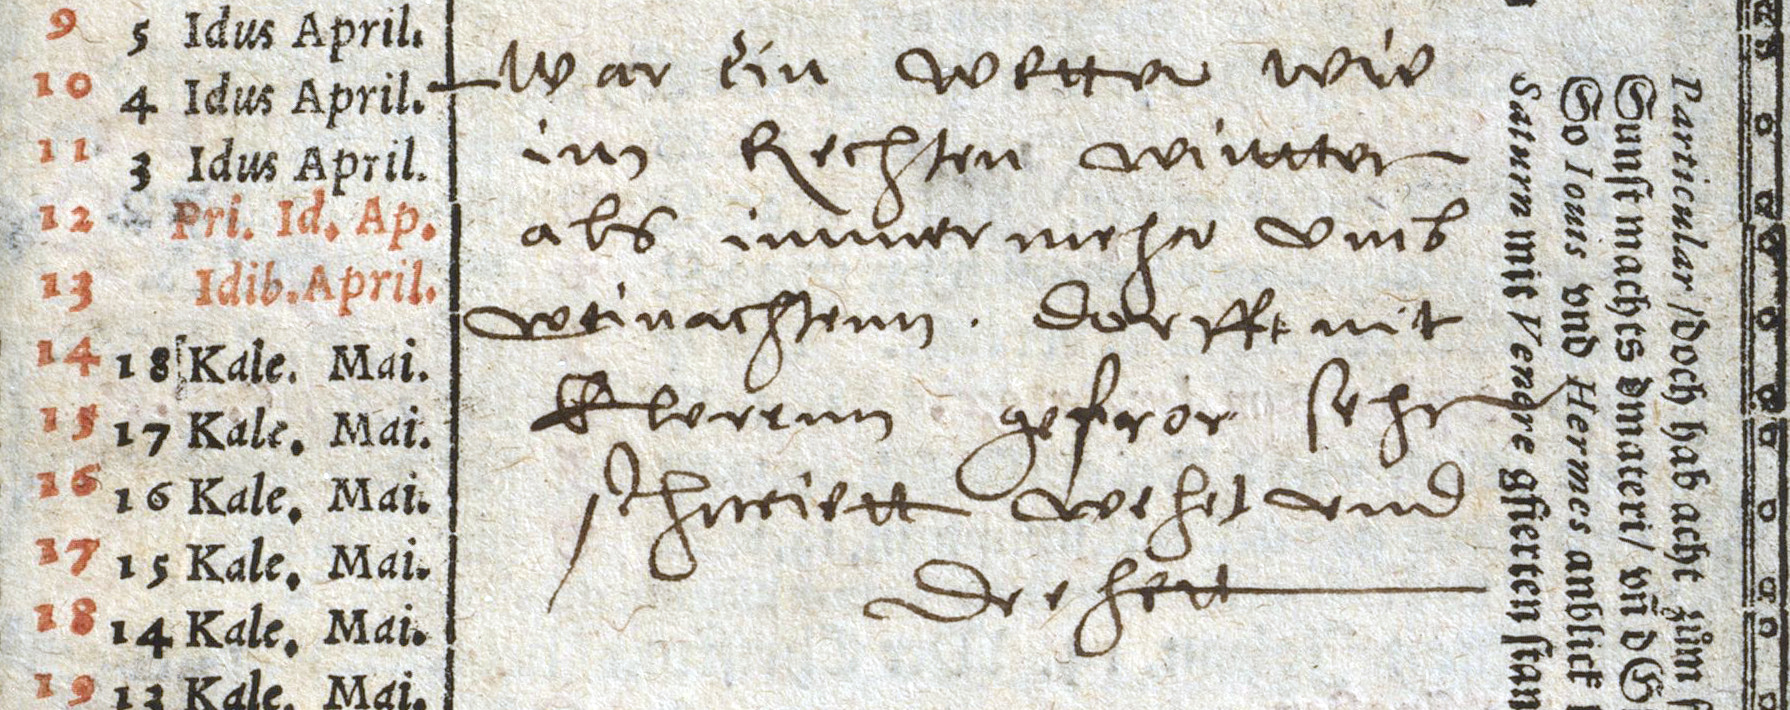 9 5 Idus April.
10 4 Idus April.
11 3 Idus April.
12 Pri. Id. Ap.
13 Idib. April.
14 18 Kale. Mai.
15 17 Kale. Mai.
16 16 Kale. Mai.
17 15 Kale. Mai.
18 14 Kale. Mai.
19 13 Kale. Mai.
war ein wetter wie
im Rechten wintter
als immer mehr umb
weinachtenn. dorfft nit
gefror sehr
schneiett wehet und
Particular / doch hab acht zům
Sunst machts vnd
So Iouis vnd Hermes anblick
Saturn mit Venere gfierten stan